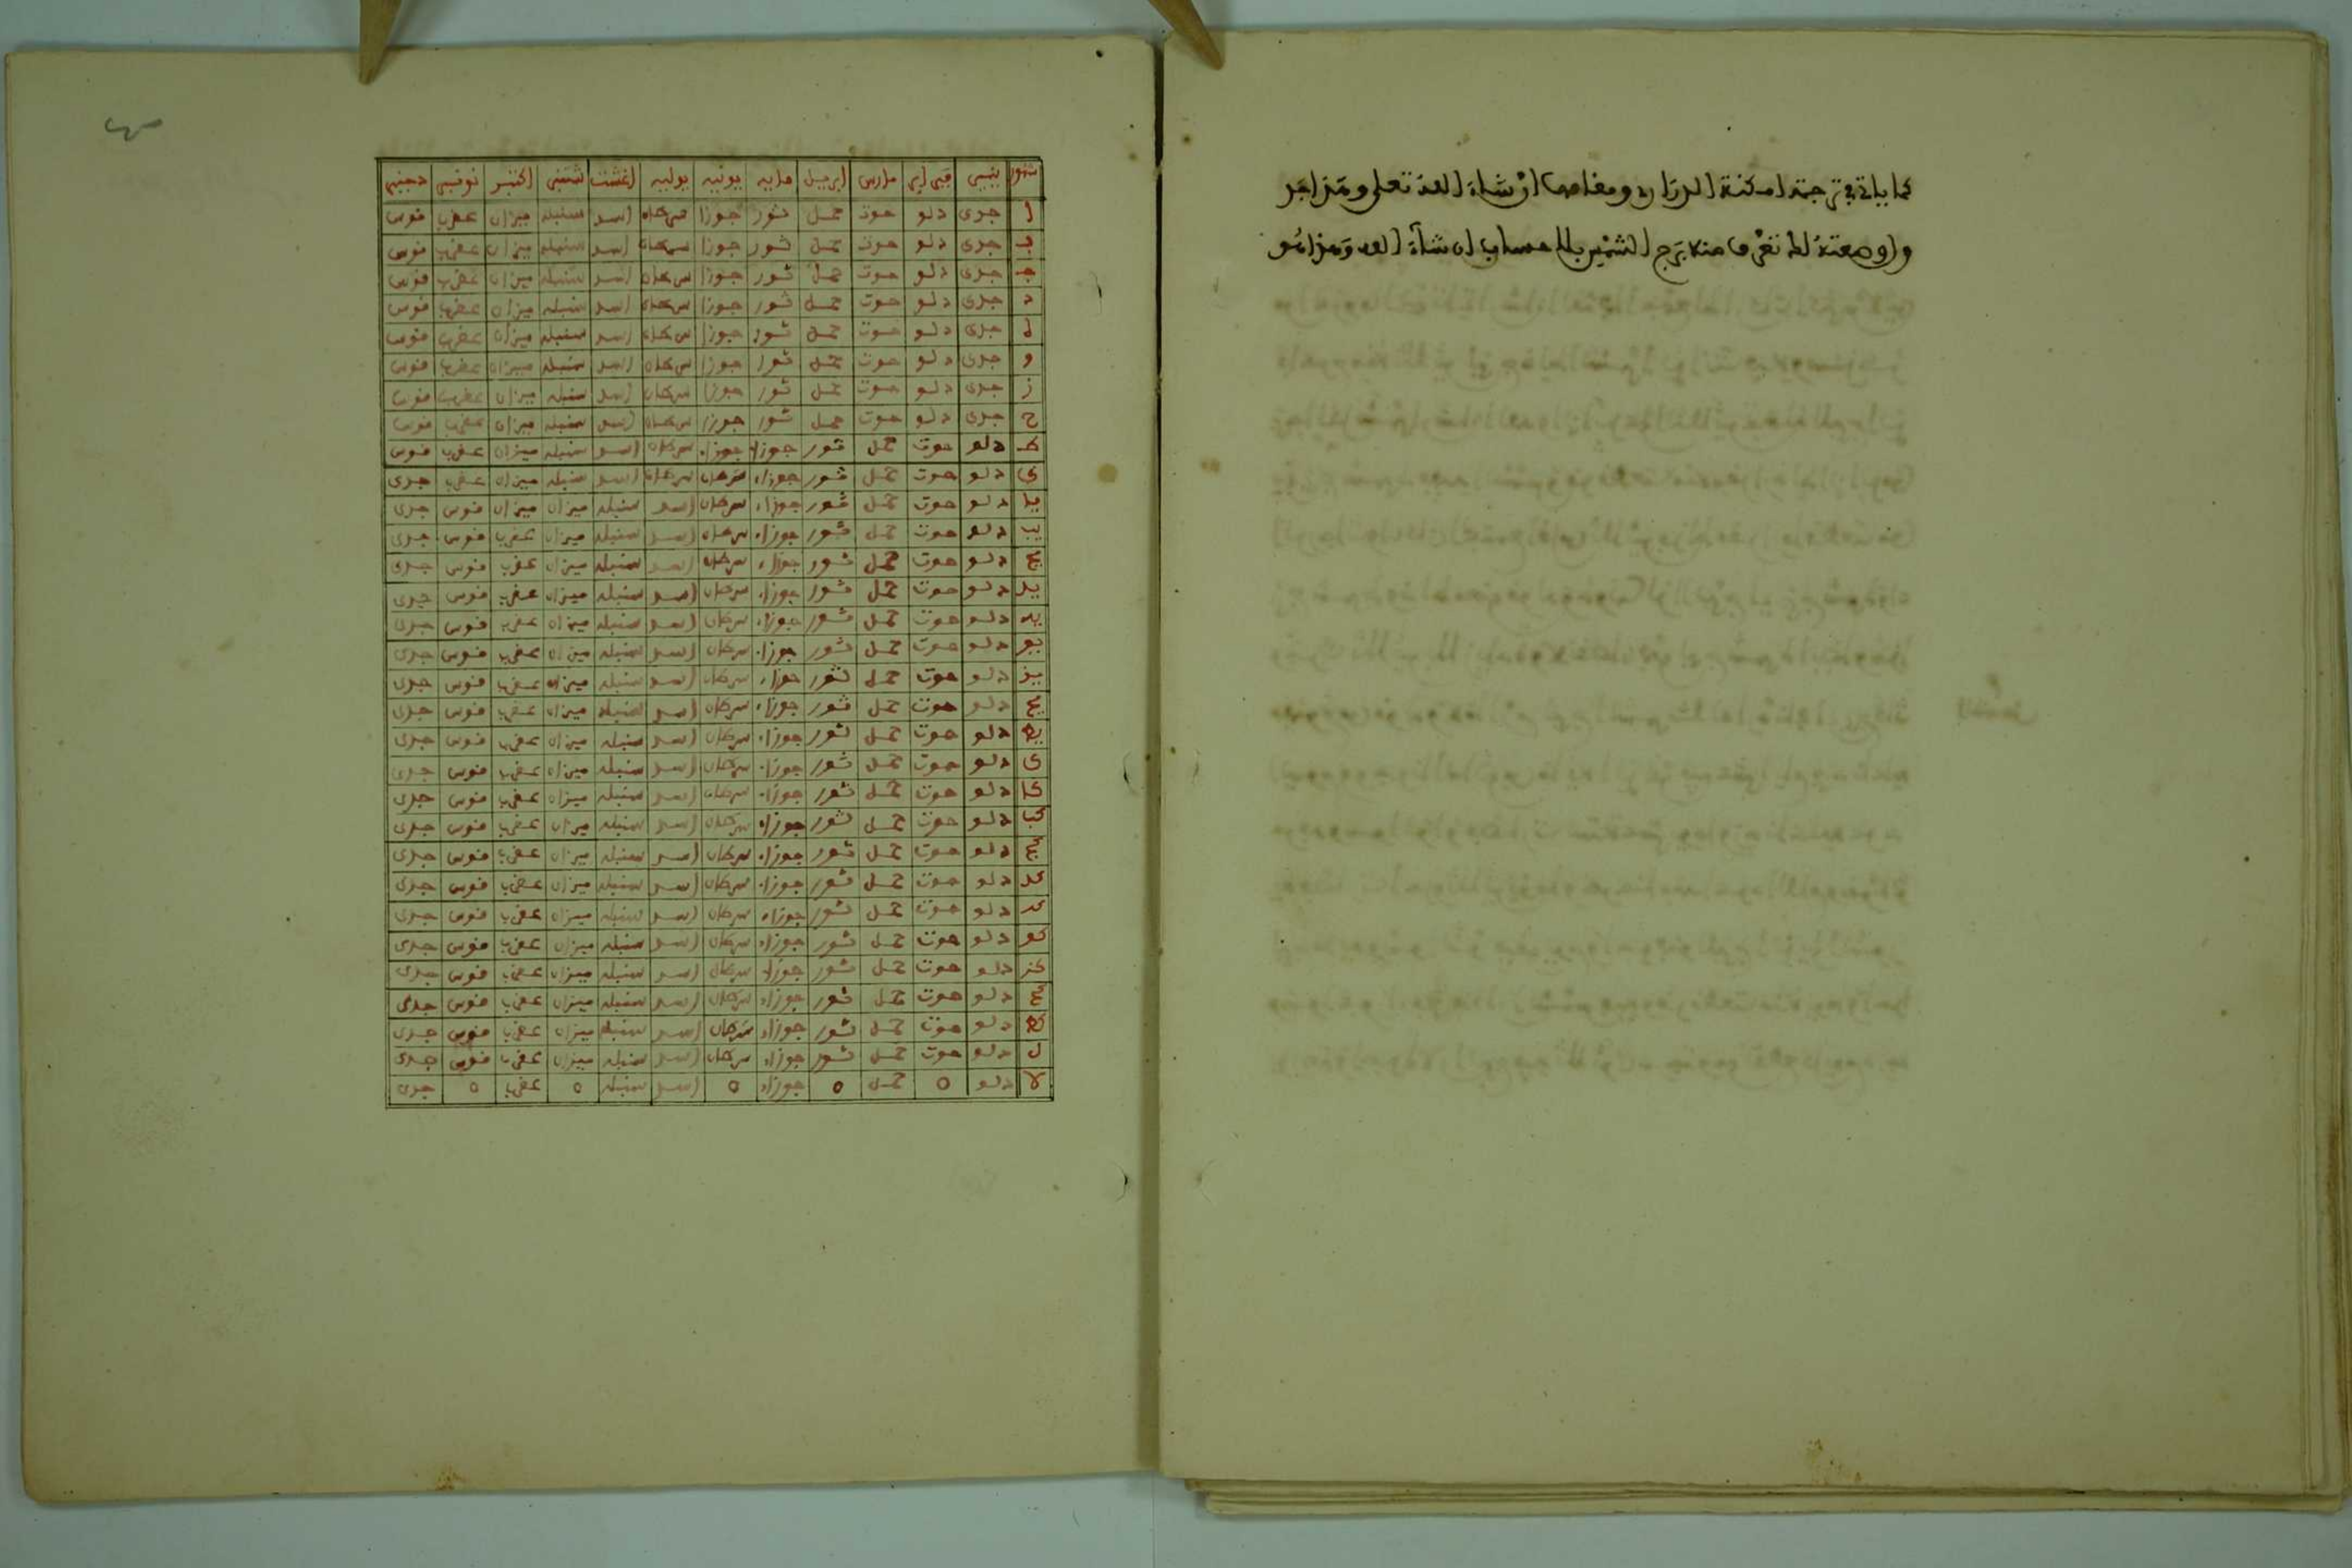 كما ياتي في ترجمة امكنة الدراري ومقامها ان شاء الله تعلى وهذا جد
ول وضعته لك تعرف منه برج الشمس بلا حساب ان شاء الله وهذا هو
شهور ينير فبراير مارس ابريل مايه يونيه يوليه اغشت شتنبر اكتبر نونبر دجنبر
ا جدى دلو حوت حمل ثور جوزا سرطان اسد سنبله ميزان عقرب قوس
ب جدى دلو حوت حمل ثور جوزا سرطان اسد سنبله ميزان عقرب قوس
ج جدى دلو حوت حمل ثور جوزا سرطان اسد سنبله ميزان عقرب قوس
د جدى دلو حوت حمل ثور جوزا سرطان اسد سنبله ميزان عقرب قوس
ه جدى دلو حوت حمل ثور جوزا سرطان اسد سنبله ميزان عقرب قوس
و جدى دلو حوت حمل ثور جوزا سرطان اسد سنبله ميزان عقرب قوس
ز جدى دلو حوت حمل ثور جوزا سرطان اسد سنبله ميزان عقرب قوس
ح جدى دلو حوت حمل ثور جوزا سرطان اسد سنبله ميزان عقرب قوس
ط دلو حوت حمل ثور جوزاء جوزاء سرطان اسد سنبله ميزان عقرب قوس
ى دلو حوت حمل ثور جوزاء سرطان سرطان اسد سنبله ميزان عقرب جدى
يا دلو حوت حمل ثور جوزاء سرطان اسد سنبله ميزان ميزان قوس جدى
يب دلو حوت حمل ثور جوزاء سرطان اسد سنبله ميزان عقرب قوس جدى
يج دلو حوت حمل ثور جوزاء سرطان اسد سنبله ميزان عقرب قوس جدى
يد دلو حوت حمل ثور جوزاء سرطان اسد سنبله ميزان عقرب قوس جدى
يه دلو حوت حمل ثور جوزاء سرطان اسد سنبله ميزان عقرب قوس جدى
يو دلو حوت حمل ثور جوزاء سرطان اسد سنبله ميزان عقرب قوس جدى
يز دلو حوت حمل ثور جوزاء سرطان اسد سنبله ميزان عقرب قوس جدى
يح دلو حوت حمل ثور جوزاء سرطان اسد سنبله ميزان عقرب قوس جدى
يط دلو حوت حمل ثور جوزاء سرطان اسد سنبله ميزان عقرب قوس جدى
ك دلو حوت حمل ثور جوزاء سرطان اسد سنبله ميزان عقرب قوس جدى
كا دلو حوت حمل ثور جوزاء سرطان اسد سنبله ميزان عقرب قوس جدى
كب دلو حوت حمل ثور جوزاء سرطان اسد سنبله ميزان عقرب قوس جدى
كج دلو حوت حمل ثور جوزاء سرطان اسد سنبله ميزان عقرب قوس جدى
كد دلو حوت حمل ثور جوزاء سرطان اسد سنبله ميزان عقرب قوس جدى
كه دلو حوت حمل ثور جوزاء سرطان اسد سنبله ميزان عقرب قوس جدى
كو دلو حوت حمل ثور جوزاء سرطان اسد سنبله ميزان عقرب قوس جدى
كز دلو حوت حمل ثور جوزاء سرطان اسد سنبله ميزان عقرب قوس جدى
كح دلو حوت حمل ثور جوزاء سرطان اسد سنبله ميزان عقرب قوس جدى
كط دلو حوت حمل ثور جوزاء سرطان اسد سنبله ميزان عقرب قوس جدى
ل دلو حوت حمل ثور جوزاء سرطان اسد سنبله ميزان عقرب قوس جدى
لا دلو o حمل o جوزاء o اسد سنبله o عقرب o جدى